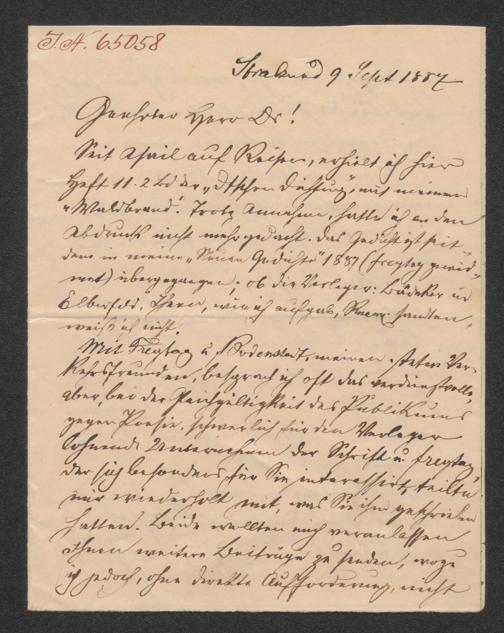 J.N. 65058
Stralsund 9 Sept 1887
Geehrter Herr Dr!
Seit April auf Reisen, erhielt ich hier
Heft 11. 2 Bd der „Dtschen Dichtung“, mit meinem
„Waldbrand“. Trotz Annahme, hatte ich an den
Abdruck nicht mehr gedacht. Das Gedicht ist seit
dem in meine „Neuen Gedichte“ 1887 (Freytag gewid
met) übergegangen; ob die Verleger: Bädeker in
Elberfeld, Ihnen, wie ich aufgab, sandten,
weiß ich nicht.
Mit Freytag u. Bodenstedt, meinen steten Ver-
kehrsfreunden, besprach ich oft das verdienstvolle,
aber, bei der Gleichgültigkeit des Publikums
gegen Poesie, schwerlich für den Verleger
lohnende Unternehmen der Schrift u. Freytag
der sich besonders für Sie interessirt, teilte
mir wiederholt mit, was Sie ihm geschrieben
hatten. Beide wollten mich veranlassen
Ihnen weitere Beiträge zu senden, wozu
ich jedoch, ohne direkte Aufforderung, nicht